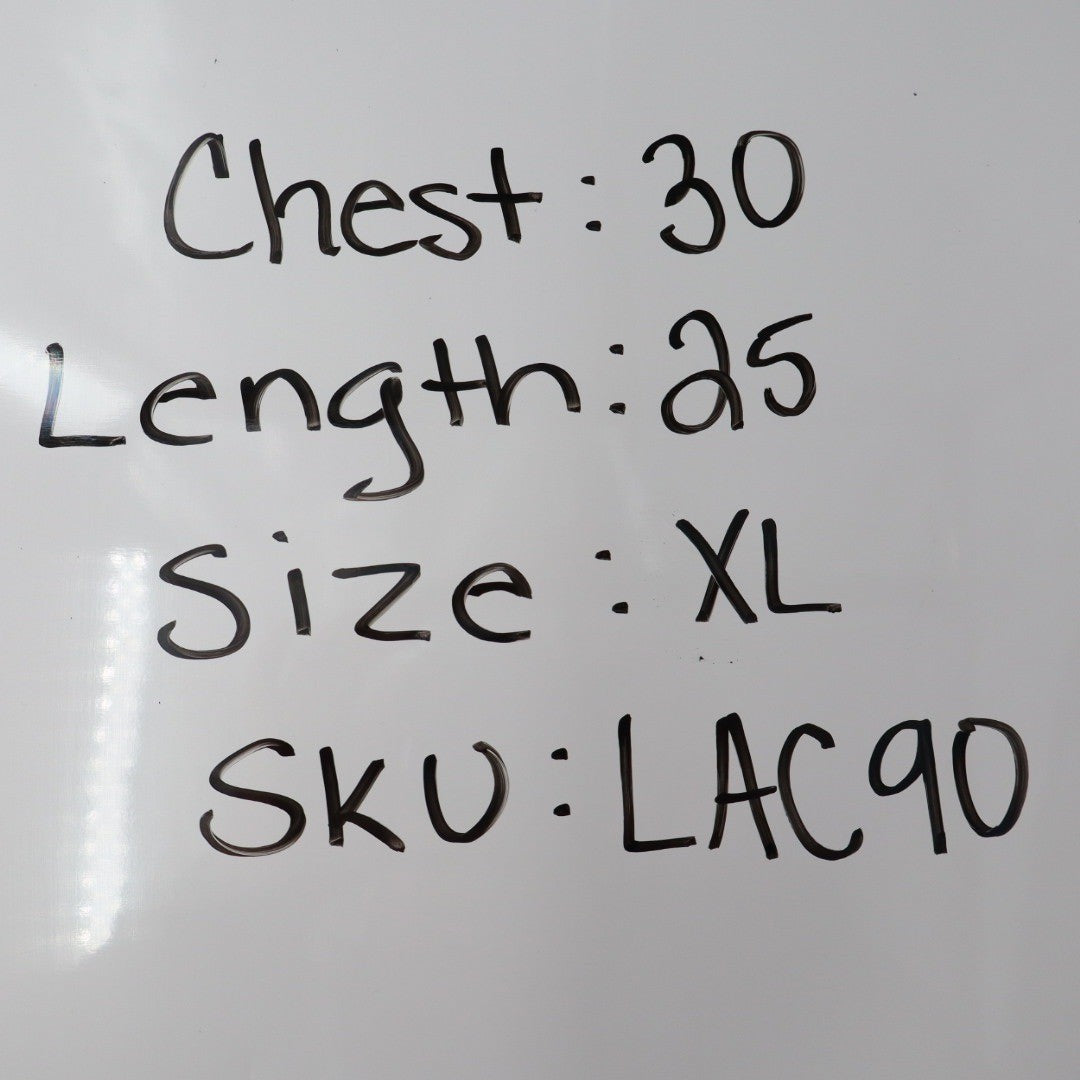 Chest: 30
Length: 25
Size: XL
SKU: LAC90